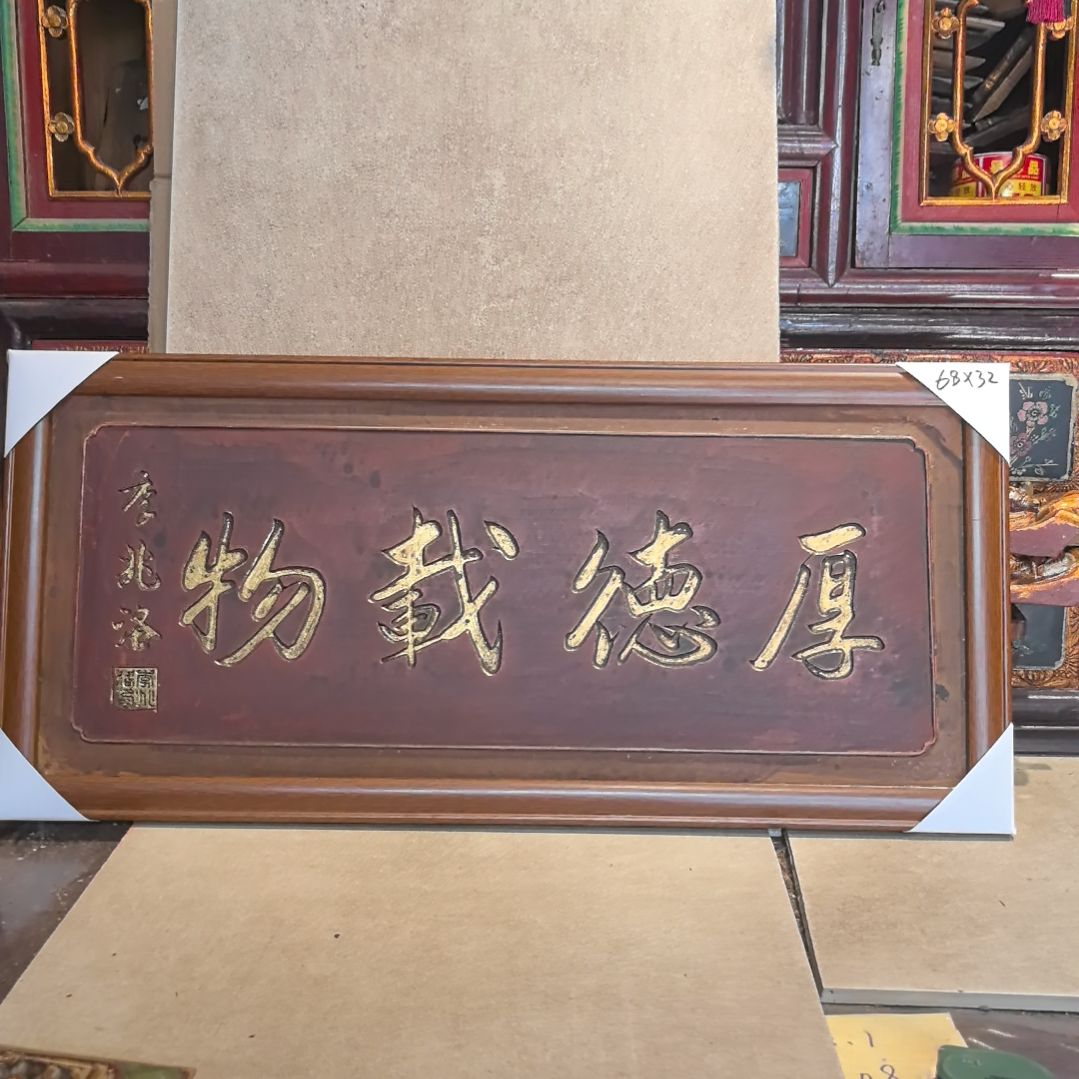 厚德載物
李兆洛
68X32